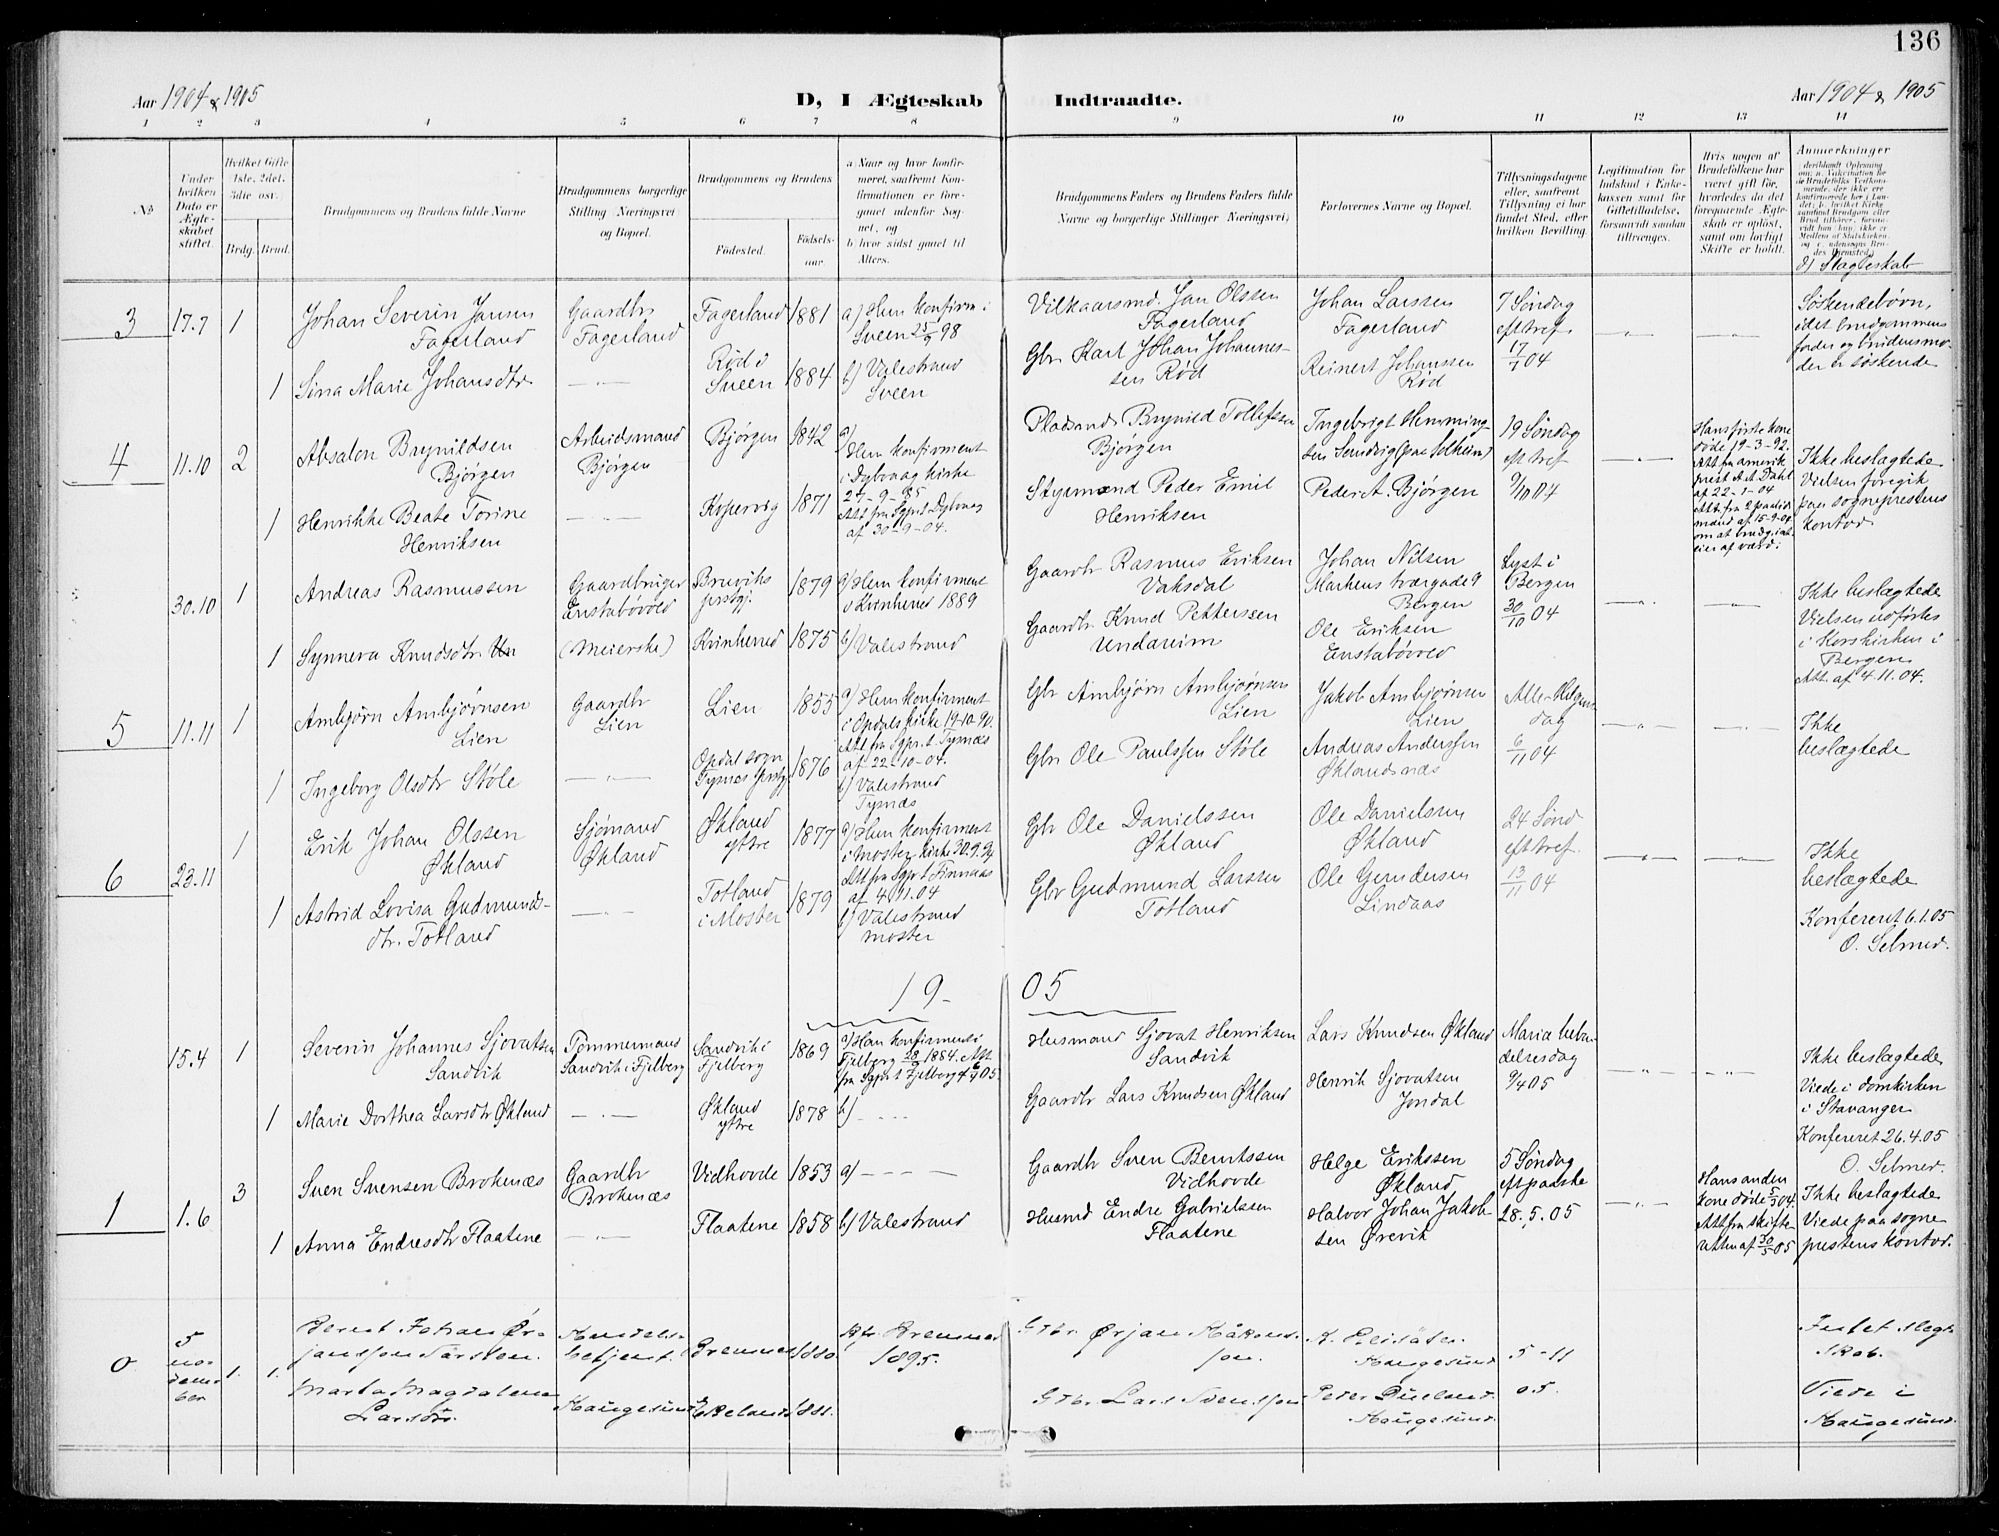 136
Aar 1904 & 1905
D, I Ægteskab Indtraadte.
Aar 1904 & 1905
1 2 3 4 5 6 7 8 9 10 11 12 13 14
No
Under hvilken Dato er Ægteskabet stiftet.
Hvilket Gifte 1ste, 2det, 3dte osv.
Brdg. Brud.
Brudgommens og Brudens fulde Navne
Brudgommens borgerlige Stilling (Næringsvei) og Bopæl.
Brudgommens og Brudens
Födested.
Födselsaar.
a Naar og hvor konfirmeret, saafremt Konfirmationen er foregaaet udenfor Sognet, og
b hvor sidst gaaet til Alters.
Brudgommens Faders og Brudens Faders fulde Navne og borgerlige Stillinger (Næringsvei)
Forlovernes Navne og Bopæl.
Tillysningsdagene eller, saafremt Tillysning ei har fundet Sted, efter hvilken Bevilling.
Legitimation for Indskud i Enkekassen samt for Giftetilladelse, forsaavidt saadan tiltrænges.
Hvis nogen af Brudefolkene har været gift før, hvorledes da det foregaaende Ægteskab er opløst, samt om lovligt Skifte er holdt.
Anmerkninger
d) Slægtskab
3
17.7
1
Johan Severin Jansen
Fagerland
Gaardbr
Fagerland
Fagerland
1881
a) Hun konfirm i
Sveen 25/9 98
Vilkaarsmd. Jan Olssen
Fagerland
Johan Larssen
Fagerland
7 Søndag
eft tref
17/7 04
Søskendebørn,
idet brudgommens
fader og brudensmo-
der er søskende
1
Sina Marie Johansdtr
Rød i
Sveen
1884
b) Valestrand
Sveen
Gbr Karl Johan Johannes-
sen Rød
Reinert Johanssen
Rød
4
11.10
2
Absalon Brynildsen
Bjørgen
Arbeidsmand
Bjørgen
Bjørgen
1842
a)
Hun konfirment
i Dybvaag kirke
27-9-85
Att fra Sgpr.t Dybvaag
af 30-9-04.
Pladsmd Brynild Tollefsen
Bjørgen
Ingebrigt Hemming-
sen
19 Søndag
eft tref
9/10 04
Hans første kone
døde 19-3-92.
Att fra amerik
prest A. A. Dahl
af 22-1-04
Ikke beslægtede
Vielsen foregik
paa sogneprestens
kontor.
1
Henrikke Beate Torine
Henriksen
1871
Styrmand Peder Emil
Henriksen
Peder A. Bjørgen
30.10
1
Andreas Rasmussen
Gaardbruger
Enstabøvold
Bruviks
prstgj.
1879
a) Hun konfirment
i Kvinherred 1889
Gaardbr Rasmus Eriksen
Vaksdal
Johan Nilsen
Markens tværgade 9
Bergen
Lyst i
Bergen
30/10 04
Ikke beslægtede
Vielsen udførtes
i Korskirken i
Bergen.
Att. af 4.11.04.
1
Synneva Knudsdtr
(Meierske)
Kvinherred
1875
b) Valestrand
Gaardbr Knud Pettersen
Undareim
Ole Eriksen
Enstabøvold
5
11.11
1
Ambjørn Ambjørnsen
Lien
Gaardbr
Lien
Lien
1855
a) Hun konfirment
i Opdals kirke 19-10-90.
Att fra Sgpr.t Tysnæs
af 22-10-04.
b) Valestrand
Tysnæs
Gbr Ambjørn Ambjørnsen
Lien
Jakob Ambjørnsen
Lien
Alle-Helgens
dag
6/11 04
Ikke
beslægtede
1
Ingeborg Olsdtr Støle
Opdal sogn
Tysnes prstgj
1876
Gbr Ole Paulssen Støle
Andreas Anderssen
Øklandsnæs
6
23.11
1
Erik Johan Olssen
Økland
Sjømand
Økland
Økland
yttre
1877
a) Hun konfirment
i Moster kirke 30.9.94
Att fra Sgpr.t Finnaas
af 4.11.04
b) Valestrand
Moster
Gbr Ole Danielssen
Økland
Ole Danielssen
Økland
24 Sønd
eft tref.
13/11 04
Ikke
beslægtede
1
Astrid Lovisa Gudmunds-
dtr. Totland
Totland
i Moster
1879
Gbr Gudmund Larssen
Totland
Ole Gundersen
Lindaas
Konfereret 6.1.05
O. Selmer.
19-05
15.4
1
Severin Johannes Sjovatsen
Sandvik
Tømmermand
Sandvik i Fjelberg
Sandvik i
Fjelberg
1869
a) Han konfirment i
Fjelberg 28/9 1884. Att
Husmand Sjovat Henriksen
Sandvik
Lars Knudsen Økland
Maria bebu
delsesdag
9/4 05
Ikke beslægtede
Viede i domkirken
i Stavanger
1
Marie Dorthea Larsdtr Økland
Økland
yttre
1878
b)
Gaardbr Lars Knudsen Økland
Henrik Sjovatsen
Jondal
Konfereret 26.4.05
O. Selmer.
1
1.6
3
Sven Svensen Brokenæs
Gaardbr
Brokenæs
Vidhovde
1853
a)
Gaardbr Sven Berntssen
Vidhovde
Helge Erikssen
Økland
5 Søndag
eft paaske
28.5.05
Hans anden
kone døde 5/1 04.
Att fra skifte
retten af 30/5 05
Ikke beslægtede
Viede paa sogne
prestens kontor.
1
Anna Endresdtr Flaatene
Flaatene
1858
b) Valestrand
Husmd Endre Gabrielssen
Flaatene
Halvor Johan Jakob-
sen Ørevik
0
5
no-
vem-
ber
1.
1.
Bernt Johan Ør-
jansson
Handels-
betjent.
Bremnes
1880
Bremnes
1895.
Gbr. Ørjan Håkons-
son.
Haugesund
5-11
05.
Intet slegt-
skab.
Marta Magdalena
Larsdtr.
Haugesund
Ekeland
1881.
Gbr Lars Svensson
Peder
Haugesund.
Viede i
Haugesund.